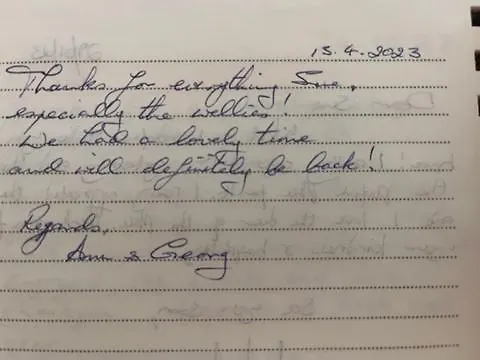 15.4.2023
Thanks for everything Sue,
especially the wellies!
We had a lovely time
and will definitely be back!
Regards,
Ann & Georg